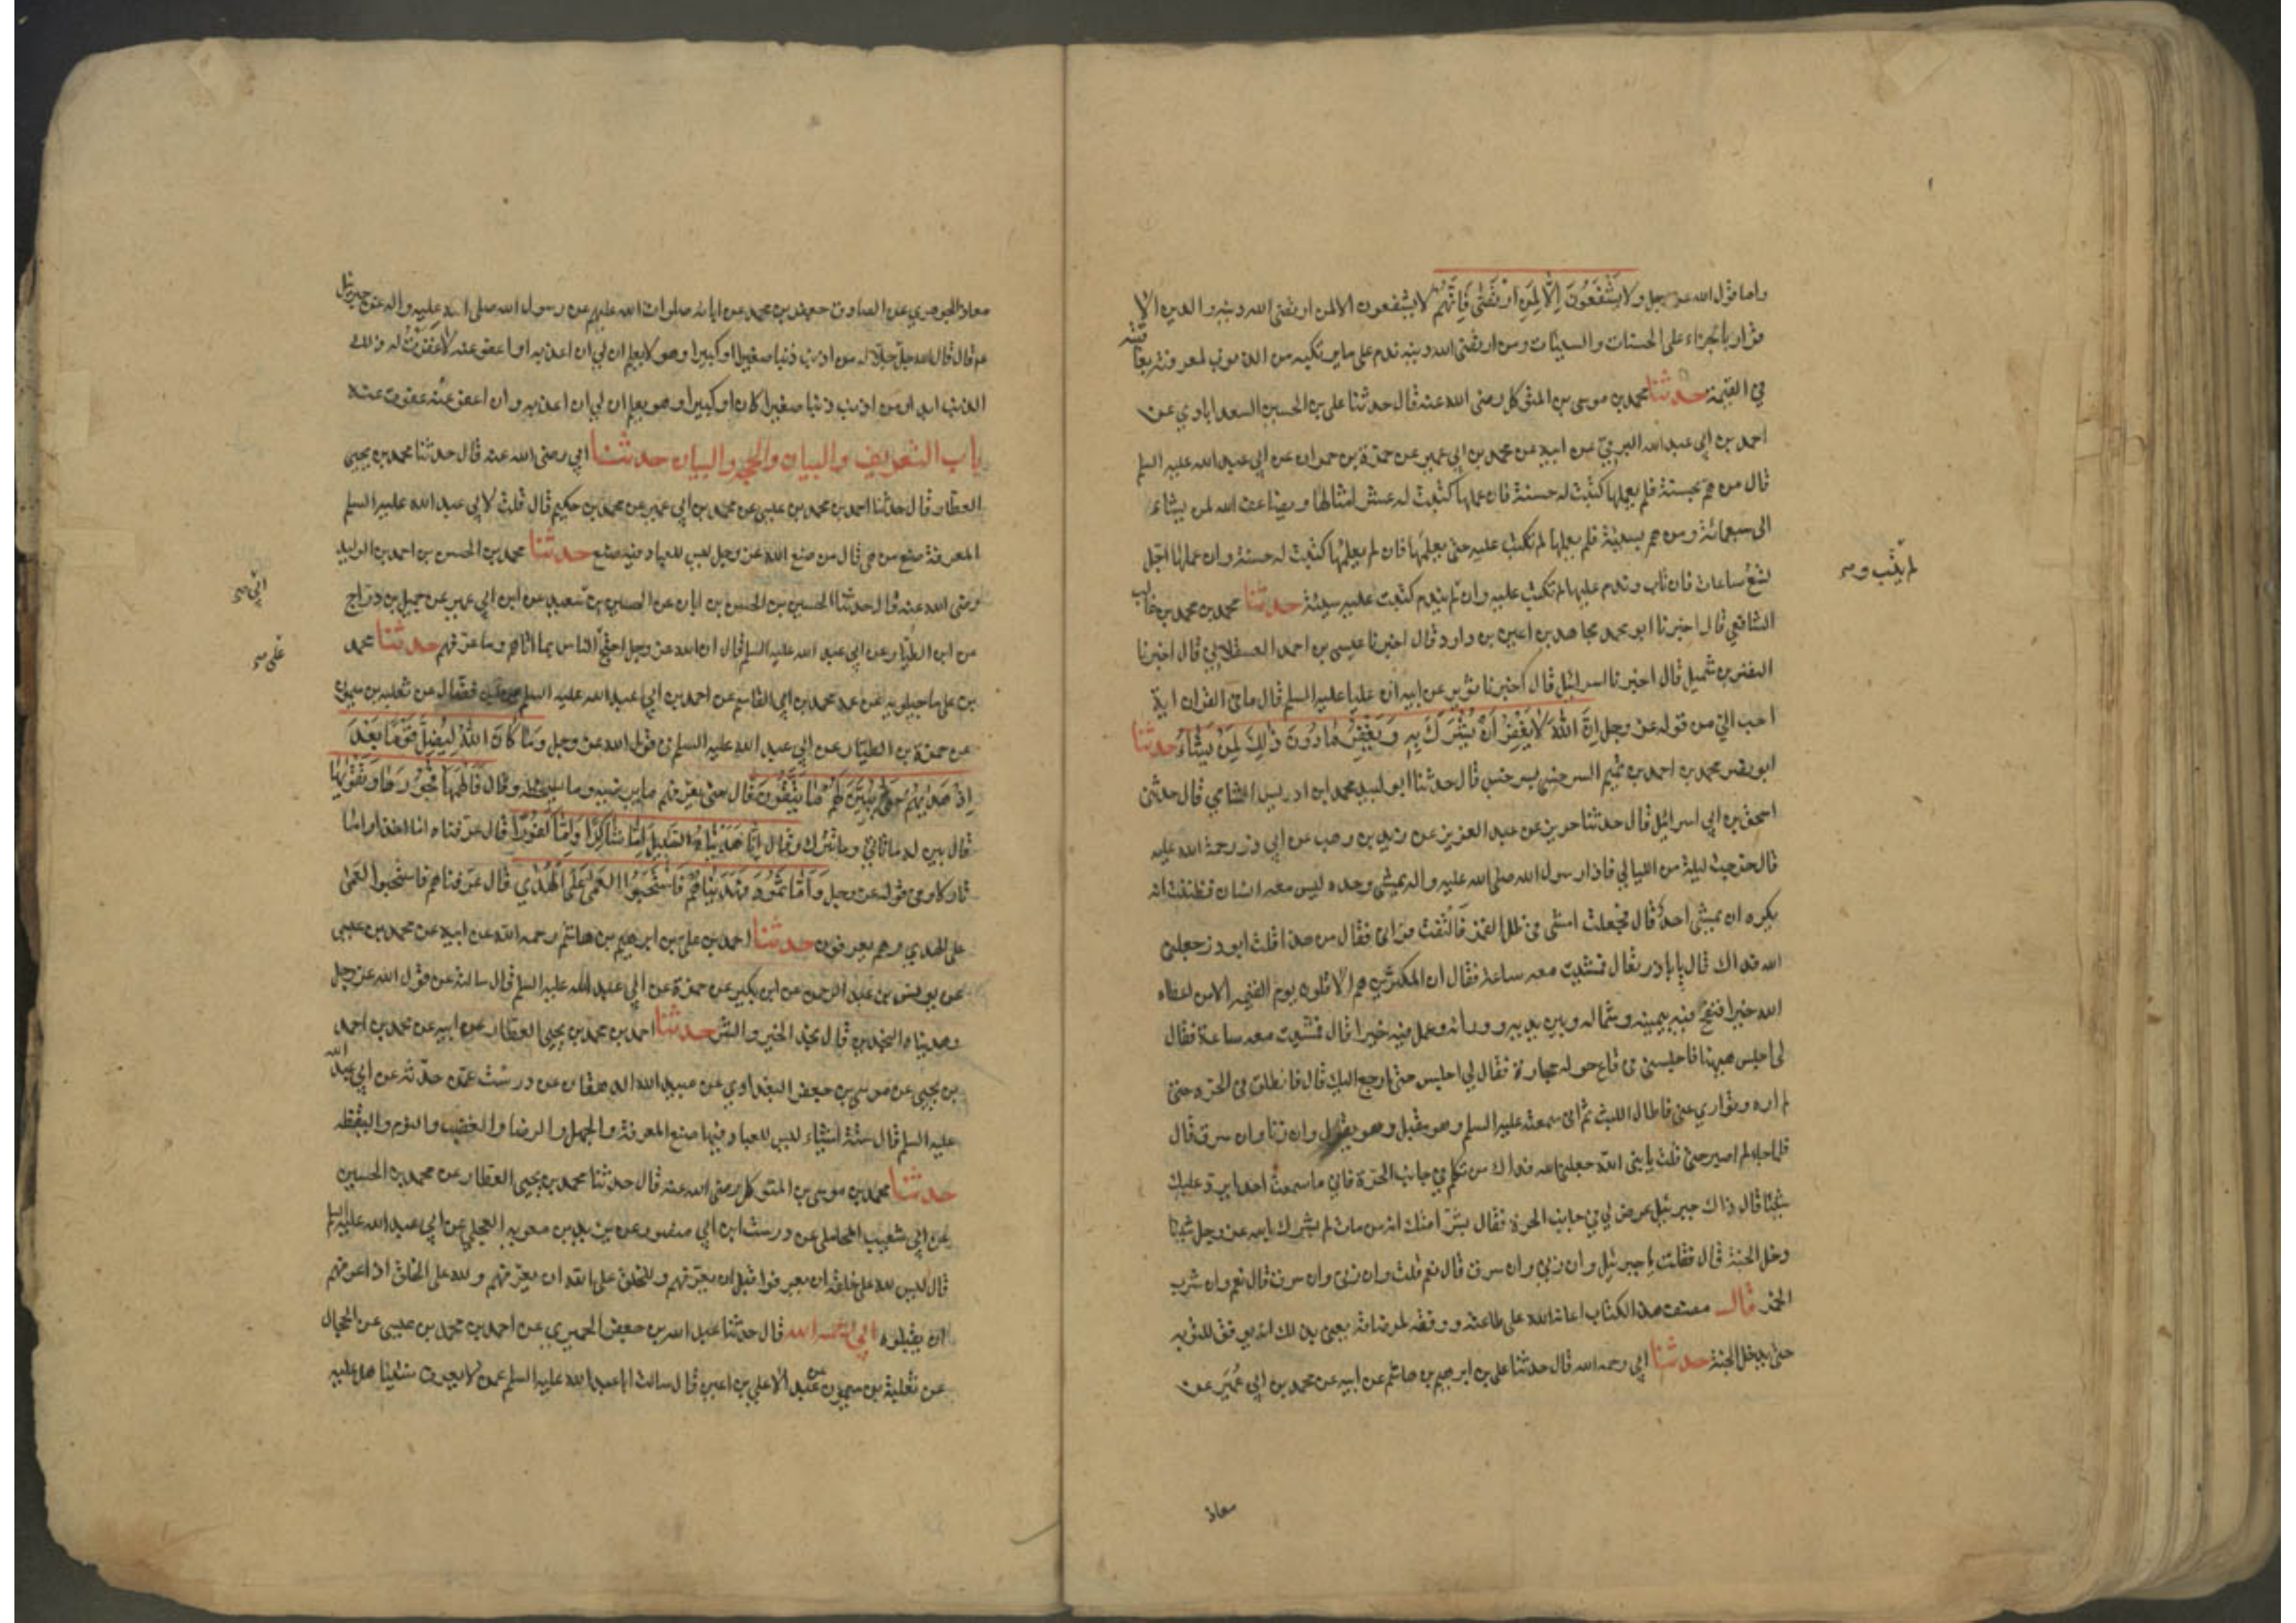 واما قول الله عز وجل ولا يشفعون إلا لمن ارتضى فانهم لا يشفعون الا لمن ارتضى الله دينه والدين الا
قرار بالجزاء على الحسنات والسيئات ومن ارتضى الله دينه ندم على ما يرتكبه من الذنوب لمعرفته بعاقبته
في القيمة حدثنا محمد بن موسى بن المتوكل رضى الله عنه قال حدثنا على بن الحسين السعدابادي عن
احمد بن ابي عبد الله البرقي عن ابيه عن محمد بن ابي عمير عن حمزة بن حمران عن ابي عبد الله عليه السلم
قال من هم بحسنة فلم يعملها كتبت له حسنة فان عملها كتبت له عشر امثالها ويضاعف الله لمن يشاء
الى سبعمائة ومن هم بسيئة فلم يعملها لم تكتب عليه حتى يعملها فان لم يعملها كتبت له حسنة وان عملها اجل
تسع ساعات فان تاب وندم عليها لم تكتب عليه وان لم يندم كتبت عليه سيئة حدثنا محمد بن محمد بن غالب
الشافعي قال اخبرنا ابو محمد مجاهد بن اعين بن داود قال اخبرنا عيسى بن احمد العسقلاني قال اخبرنا
النضر بن شميل قال اخبرنا اسرائيل قال اخبرنا ثوير عن ابيه ان عليا عليه السلم قال ما في القران اية
احب الي من قوله عز وجل إن الله لا يغفر أن يشرك به ويغفر ما دون ذلك لمن يشاء حدثنا
ابو نصر محمد بن احمد بن تميم السرخسي بسرخس قال حدثنا ابو لبيد محمد ابن ادريس الشامي قال حدثني
اسحق بن ابي اسرائيل قال حدثنا حريز عن عبد العزيز عن زيد بن وهب عن ابي ذر رحمة الله عليه
قال خرجت ليلة من الليالي فاذا رسول الله صلى الله عليه واله يمشي وحده ليس معه انسان فظننت انه
يكره ان يمشي احد قال فجعلت امشي في ظل القمر فالتفت فراني فقال من هذا قلت ابو ذر جعلني
الله فداك قال يا باذر تعال فمشيت معه ساعة فقال ان المكثرين هم الاقلون يوم القيمة الا من اعطاه
الله خيرا فنفح فيه بيمينه وشماله وبين يديه وورائه وعمل فيه خيرا قال فمشيت معه ساعة فقال
لى اجلس ههنا فاجلسني في قاع حوله حجارة فقال لي اجلس حتى ارجع اليك قال فانطلق في الحرة حتى
لم اره وتوارى عني فاطال اللبث ثم انى سمعته عليه السلم وهو مقبل وهو يقول وان زنا وان سرق قال
فلما جاء لم اصبر حتى قلت يا نبى الله جعلني الله فداك من تكلم في جانب الحرة فاني ما سمعت احدا يرد عليك
شيئا قال ذاك جبرئيل عرض لي في جانب الحرة فقال بشر امتك انه من مات لم يشرك بالله عز وجل شيئا
دخل الجنة قال فقلت يا جبرئيل وان زنى وان سرق قال نعم قلت وان زنى وان سرق قال نعم وان شرب
الخمر قال مصنف هذا الكتاب اعانه الله على طاعته ووفقه لمرضاته يعنى بذلك انه يوفق للتوبه
حتى يدخل الجنة حدثنا ابي رحمه الله قال حدثنا على بن ابرهيم بن هاشم عن ابيه عن محمد بن ابي عمير عن
معاذ
معاذ الجوهري عن الصادق جعفر بن محمد عن ابائه صلوات الله عليهم عن رسول الله صلى الله عليه واله عن جبرئيل
عم قال قال الله جل جلاله من اذنب ذنبا صغيرا او كبيرا وهو لا يعلم ان لي ان اعذبه او اعفو عنه لا غفرت له ذلك
الذنب ابدا ومن اذنب ذنبا صغيرا كان او كبيرا وهو يعلم ان لي ان اعذبه وان اعفو عنه عفوت عنه
باب التعريف والبيان والحجة والبيان حدثنا ابي رضى الله عنه قال حدثنا محمد بن يحيى
العطار قال حدثنا احمد بن محمد بن عيسى عن محمد بن ابي عمير عن محمد بن حكيم قال قلت لابي عبد الله عليه السلم
المعرفة صنع من هى قال من صنع الله عز وجل ليس للعباد فيه صنع حدثنا محمد بن الحسن بن احمد بن الوليد
رضى الله عنه قال حدثنا الحسين بن الحسن بن ابان عن الحسين بن سعيد عن ابن ابي عمير عن جميل بن دراج
عن ابن الطيار عن ابي عبد الله عليه السلم قال ان الله عز وجل احتج الناس بما اتاهم وما عرفهم حدثنا محمد
بن على ماجيلويه عن عمه محمد بن ابي القاسم عن احمد بن ابي عبد الله عن ابن فضال عن ثعلبه بن ميمون
عن حمزة بن الطيار عن ابي عبد الله عليه السلم في قول الله عز وجل وما كان الله ليضل قوما بعد
إذ هديهم حتى يبين لهم ما يتقون قال حتى يعرفهم ما يرضيه وما يسخطه وقال فالهمها فجورها وتقويها
قال بين لها ما تاتي وما تترك وقال إنا هديناه السبيل إما شاكرا وإما كفورا قال عرفناه اما اخذا واما
تاركا وفي قوله عز وجل وأما ثمود فهديناهم فاستحبوا العمى على الهدي قال عرفناهم فاستحبوا العمى
على الهدي وهم يعرفون حدثنا احمد بن علي بن ابرهيم بن هاشم رحمه الله عن ابيه عن محمد بن عيسى
عن يونس بن عبد الرحمن عن ابن بكير عن حمزة عن ابي عبد الله عليه السلم قال سالته عن قول الله عز وجل
وهديناه النجدين قال نجد الخير والشر حدثنا احمد بن محمد بن يحيى العطار عن ابيه عن محمد بن احمد
بن يحيى عن موسى بن جعفر البغدادي عن عبيد الله الدهقان عن درست عمن حدثه عن ابي عبد الله
عليه السلم قال ستة اشياء ليس للعباد فيها صنع المعرفة والجهل والرضا والغضب والنوم واليقظه
حدثنا محمد بن موسى بن المتوكل رضى الله عنه قال حدثنا محمد بن يحيى العطار عن محمد بن الحسين
عن ابي شعيب المحاملي عن درست ابن ابي منصور عن بريد بن معويه العجلي عن ابي عبد الله عليه السلم
قال ليس لله على خلقه ان يعرفوا قبل ان يعرفهم وللخلق على الله ان يعرفهم ولله على الخلق اذا عرفهم
ان يقبلوه ابي رحمه الله قال حدثنا عبد الله بن جعفر الحميري عن احمد بن محمد بن عيسى عن الحجال
عن ثعلبة بن ميمون عن عبد الاعلى بن اعين قال سالت ابا عبد الله عليه السلم عمن لا يعرف شيئا هل عليه